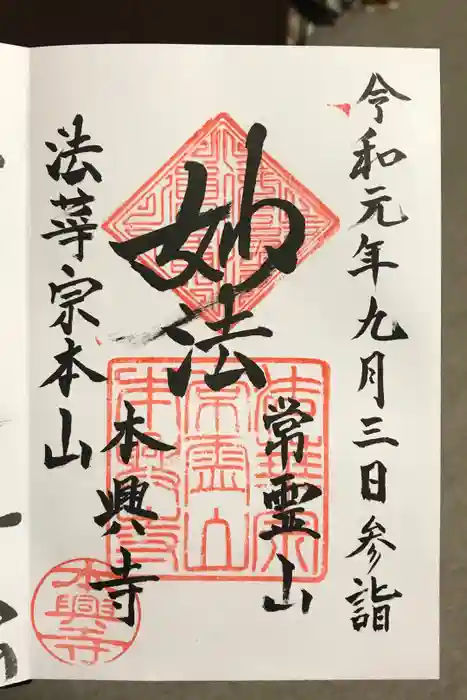 令和元年九月三日参詣
常霊山
妙法
本興寺
法華宗本山
本興寺